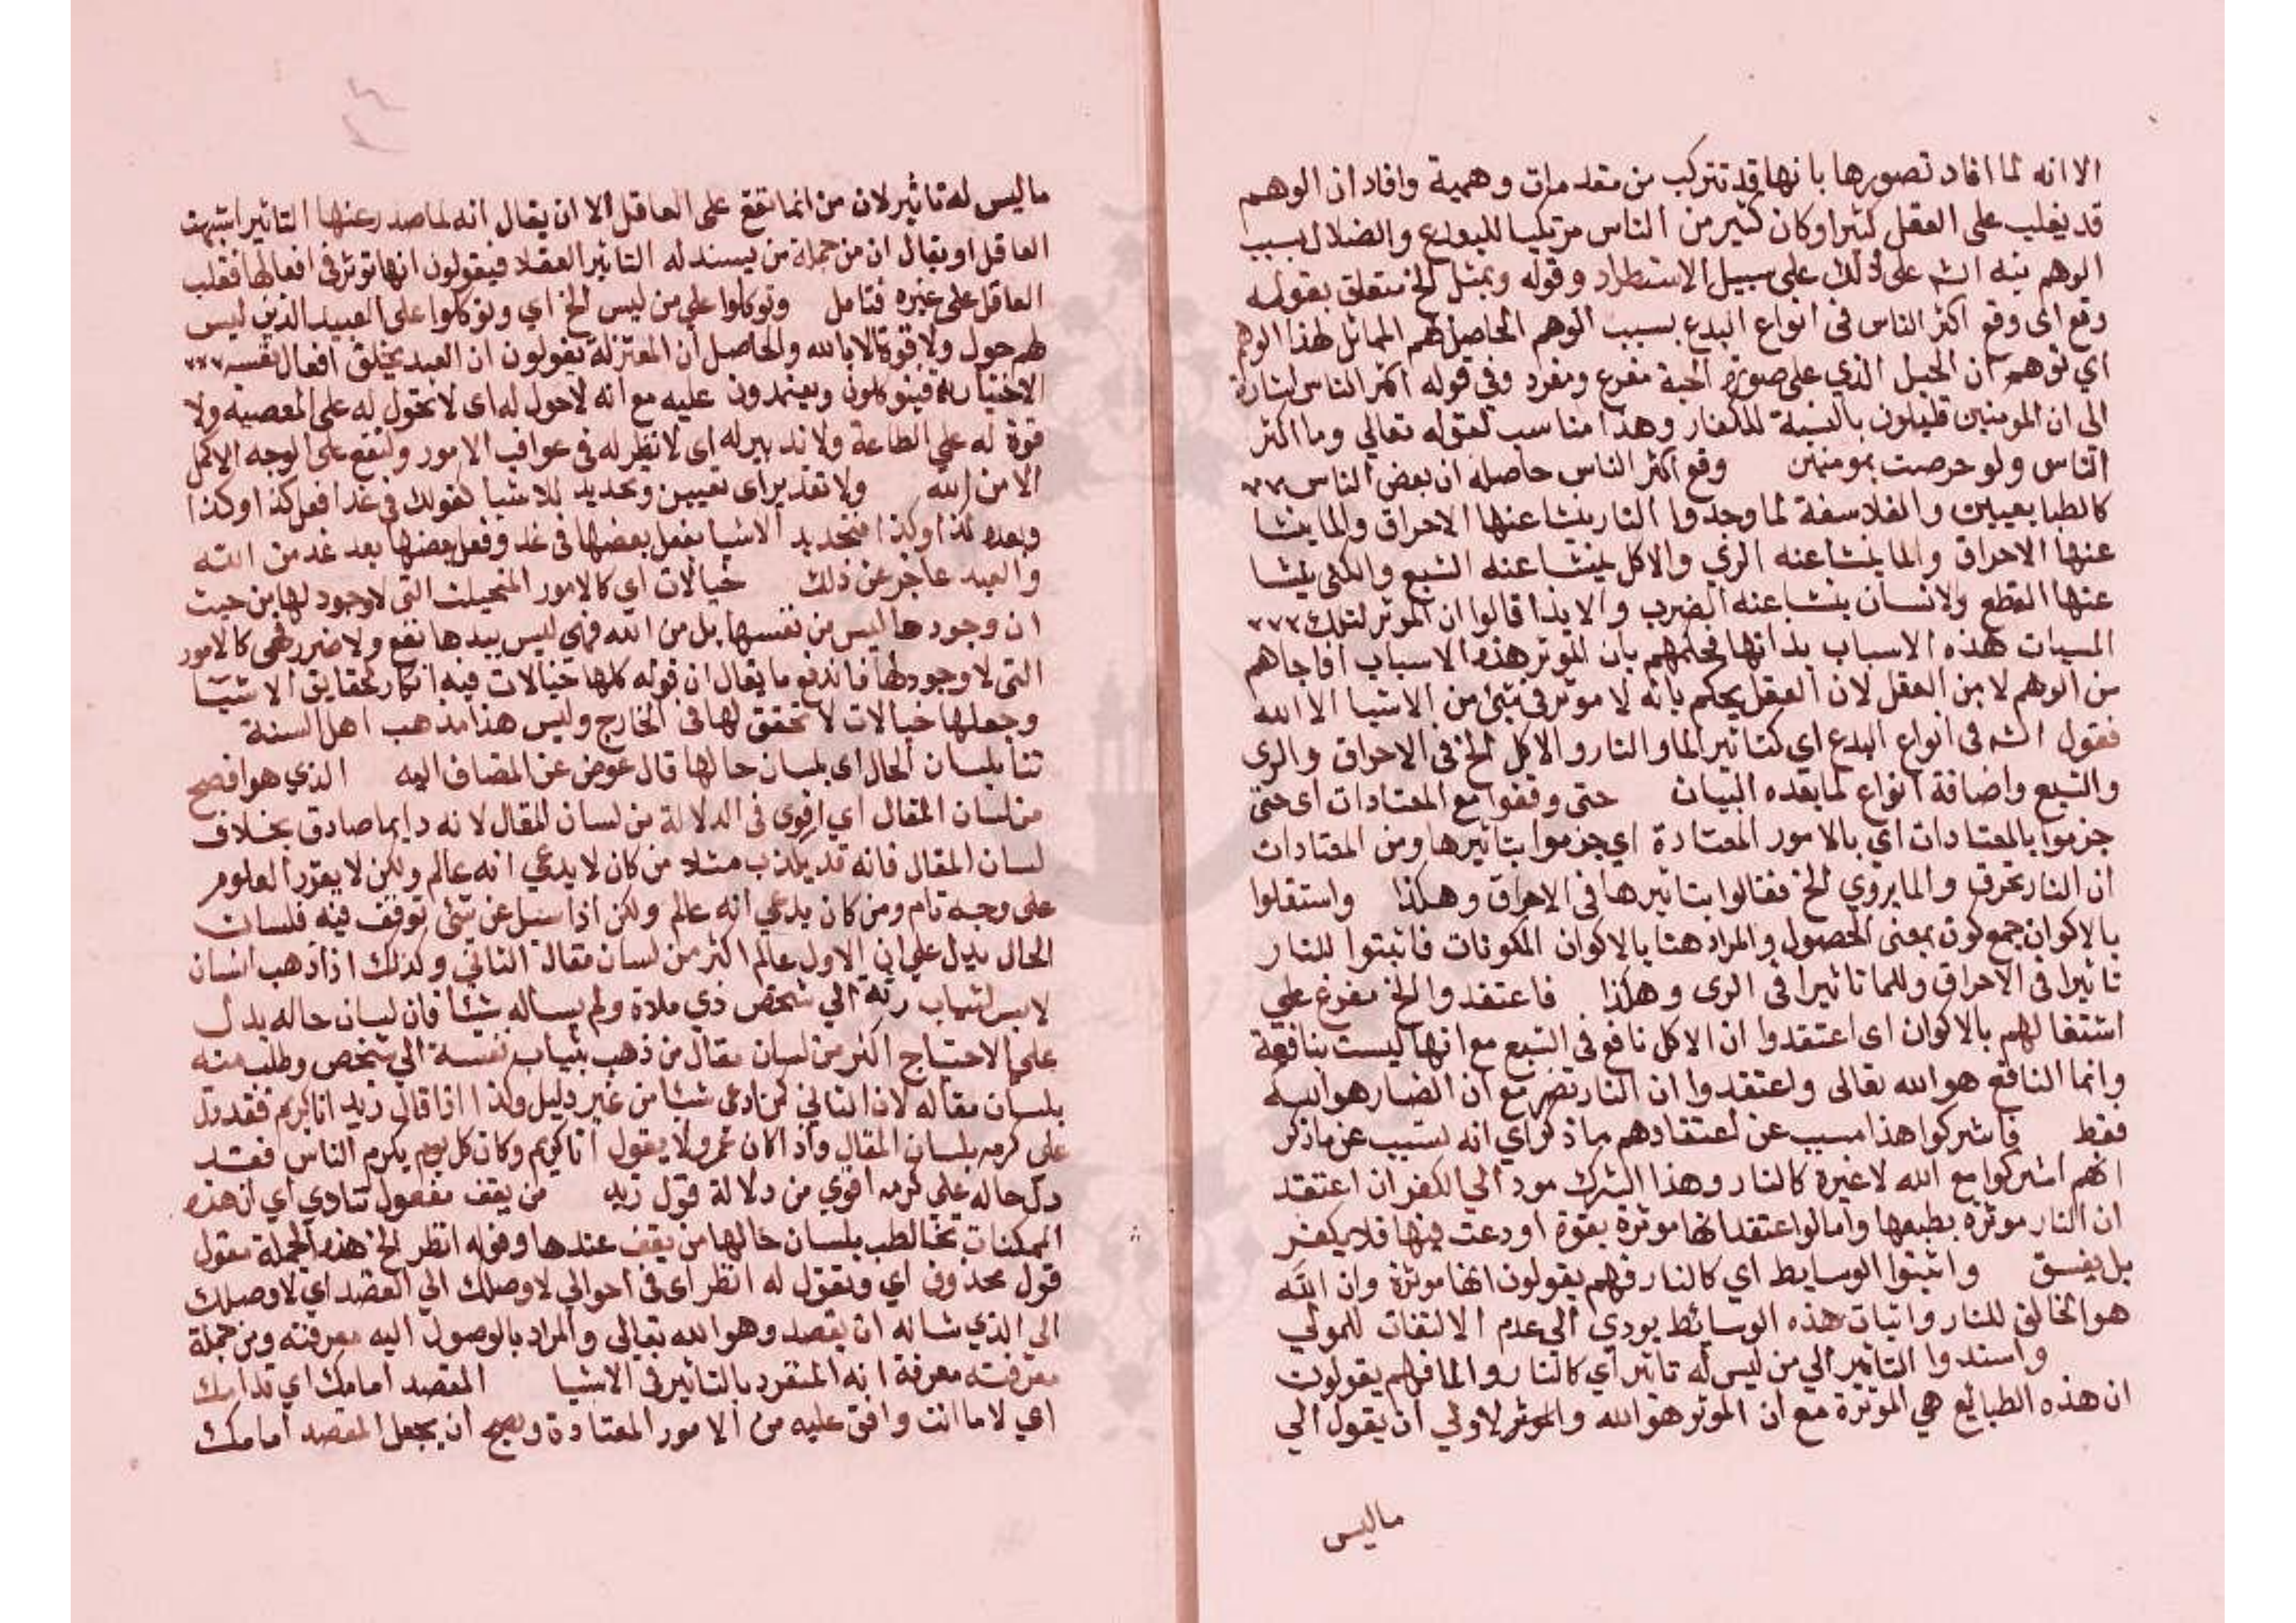 الا انه لما افاد تصورها بانها قد تتركب من مقدمات وهمية وافاد ان الوهم
قد يغلب على العقل كثيرا وكان كثير من الناس مرتكبا للبدع والضلال بسبب
الوهم نبه الشه على ذلك على سبيل الاستطراد وقوله وبمثل الخ متعلق بقوله
وقع اى وقع اكثر الناس فى انواع البدع بسبب الوهم الحاصل لهم المماثل لهذا الوهم
اي توهم ان الحبل الذي على صورة الحية مفزع ومفرد وفي قوله اكثر الناس اشارة
الى ان المومنين قليلون بالنسبة للكفار وهذا مناسب لقوله تعالي وما اكثر
الناس ولو حرصت بمومنين وقع اكثر الناس حاصله ان بعض الناس
كالطبايعيين والفلاسفة لما وجدوا النار ينشا عنها الاحراق والما ينشا
عنها الاحراق والما ينشا عنه الري والاكل ينشا عنه الشبع والسكين ينشا
عنها القطع والانسان ينشا عنه الضرب والايذا قالوا ان الموثر لتلك
المسببات هذه الاسباب بذاتها فحكمهم بان الموثر هذه الاسباب افاجاهم
من الوهم لا من العقل لان العقل يحكم بانه لا موثر فى شئ من الاشيا الا الله
فقول الشه فى انواع البدع اي كتاثير الما والنار والاكل الخ فى الاحراق والرى
والشبع واضافة انواع لما بعده البيان حتى وقفوا مع المعتادات اى حتى
جزموا بالمعتادات اي بالامور المعتادة اي جزموا بتاثيرها ومن المعتادات
ان النار تحرق والما يروي الخ فقالوا بتاثيرها فى الاحراق وهكذا واستقلوا
بالاكوان جمع كون بمعنى الحصول والمراد هنا بالاكوان المكونات فاثبتوا للنار
تاثيرا فى الاحراق وللما تاثيرا فى الرى وهكذا فاعتقدوا الخ مفرع علي
اشتغالهم بالاكوان اى اعتقدوا ان الاكل نافع فى الشبع مع انها ليست بنافعة
وانما النافع هو الله تعالى واعتقدوا ان النار تضر مع ان الضار هو الله
فقط فاشركوا هذا مسبب عن اعتقادهم ما ذكر اي انه تسبب عن ما ذكر
انهم اشركوا مع الله لا غيره كالنار وهذا الشرك مود الي الكفر ان اعتقد
ان النار موثرة بطبعها واما لو اعتقد انها موثرة بقوة اودعت فيها فلا يكفر
بل يفسق واثبتوا الوسايط اي كالنار فهم يقولون انها موثرة وان الله
هو الخالق للنار واثبات هذه الوسائط يودي الي عدم الالتفات للمولي
واسندوا التاثير الي من ليس له تاثير اي كالنار والما فهم يقولون
ان هذه الطبائع هي الموثرة مع ان الموثر هو الله والموثر لاولي ان يقول الي
ماليس
ما ليس له تاثير لان من انما تقع على العاقل الا ان يقال انه لما صدر عنها التاثير اشبهت
العاقل او يقال ان من جملة من يسند له التاثير العقلا فيقولون انها توثر فى افعالها فغلب
العاقل على غيره فتامل وتوكلوا علي من ليس الخ اي وتوكلوا على العبيد الذين ليس
لهم حول ولا قوة الا بالله والحاصل ان المعتزلة يقولون ان العبد يخلق افعال نفسه
الاختيارية فيتوكلون ويعتمدون عليه مع انه لا حول له اى لا تحول له على المعصية ولا
قوة له علي الطاعة ولا تدبير له اى لا نظر له فى عواقب الامور ولتقع على الوجه الاكمل
الا من الله ولا تقدير اى تعيين وتحديد للاشيا كقولك فى غد افعل كذا وكذا
وبعده كذا وكذا فتحديد الاشيا بفعل بعضها فى غد وفعل بعضها بعد غد من الله
والعبد عاجز عن ذلك خيالات اي كالامور المتخيلت التى لا وجود لها من حيث
ان وجودها ليس من نفسها بل من الله فهى ليس بيدها نفع ولا ضرر فهى كالامور
التى لا وجود لها فاندفع ما يقال ان قوله كلها خيالات فيه انكار لحقايق الاشيا
وجعلها خيالات لا تحقق لها فى الخارج وليس هذا مذهب اهل السنة
تنا بلسان الحال اى بلسان حالها قال عوض عن المضاف اليه الذي هو افصح
من لسان المقال اي اقوى فى الدلالة من لسان المقال لانه دايما صادق بخلاف
لسان المقال فانه قد يكذب مثلا من كان لا يدعي انه عالم ولكن لا يقرر العلوم
على وجه تام ومن كان يدعي انه عالم ولكن اذا سئل عن شئ توقف فيه فلسان
الحال يدل علي ان الاول عالم اكثر من لسان مقال الثاني وكذلك اذا ذهب انسان
لابس لثياب رثة الي شخص ذي ملاة ولم يساله شيئا فان لسان حاله يدل
على الاحتياج اكثر من لسان مقال من ذهب بثياب نفسه الي شخص وطلب منه
بلسان مقاله لان الثاني كمن ادعى شيئا من غير دليل وكذا اذا قال زيد انا كريم فقد دل
على كرمه بلسان المقال واذا كان عمرو لا يقول انا كريم وكان كل يوم يكرم الناس فقد
دل حاله علي كرمه اقوي من دلالة قول زيد من يقف مفعول تنادي اي ان هذه
الممكنات تخاطب بلسان حالها من يقف عندها وقوله انظر الخ هذه الجملة مقول
قول محذوف اي وتقول له انظر اى فى احوالي لاوصلك الي القصد اي لاوصلك
الى الذي شانه ان يقصد وهو الله تعالي والمراد بالوصول اليه معرفته ومن جملة
معرفته معرفة انه المنفرد بالتاثير فى الاشيا المقصد امامك اي قدامك
اي لا ما انت واقف عليه من الامور المعتادة ويصح ان يجعل المقصد امامك